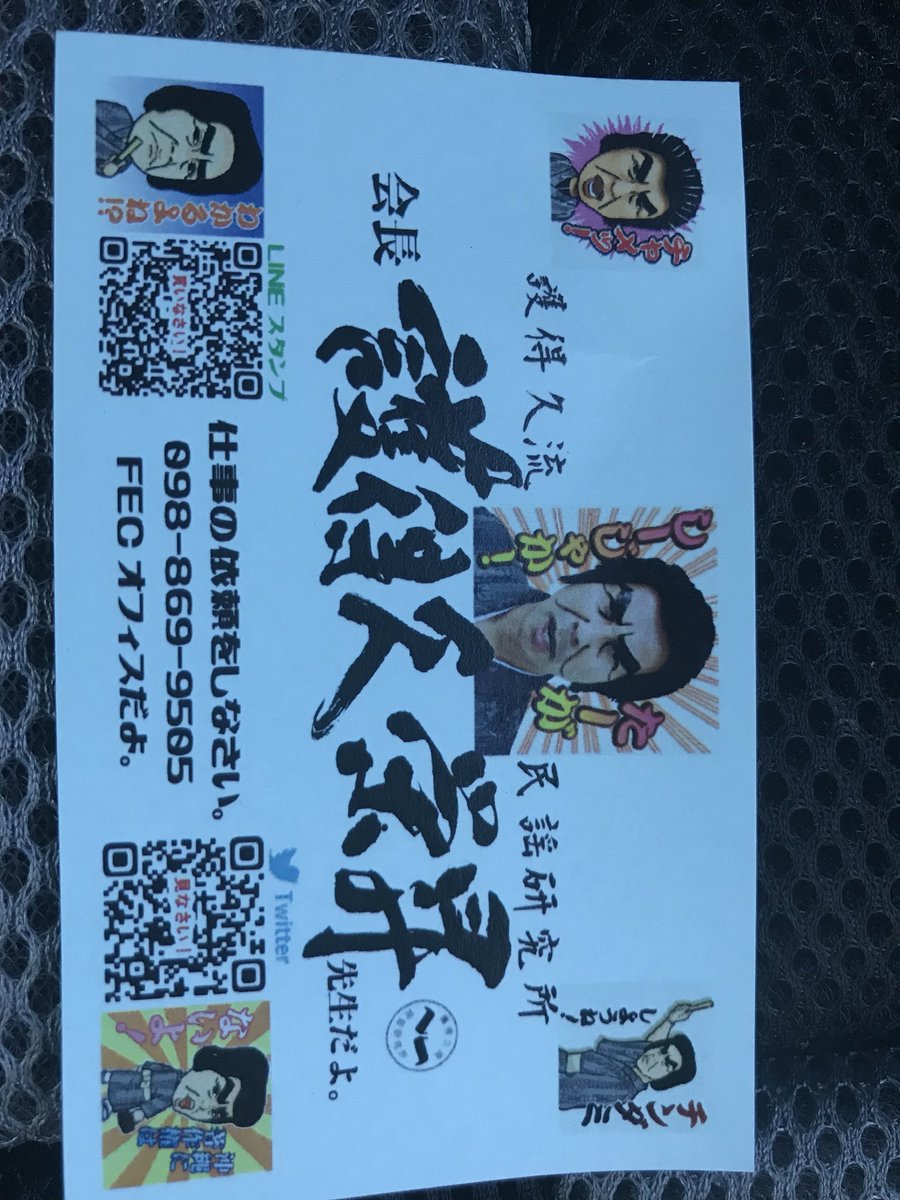 チャメッ!
護得久流
民謡研究所
じーじゃか!
たーが
チンダミ
しようね!
会長
護得久栄昇
先生だよ。
わかるよね!?
LINE スタンプ
買いなさい!
仕事の依頼をしなさい。
098-869-9505
FEC オフィスだよ。
Twitter
見なさい!
ないよ!
沖縄に
著作権